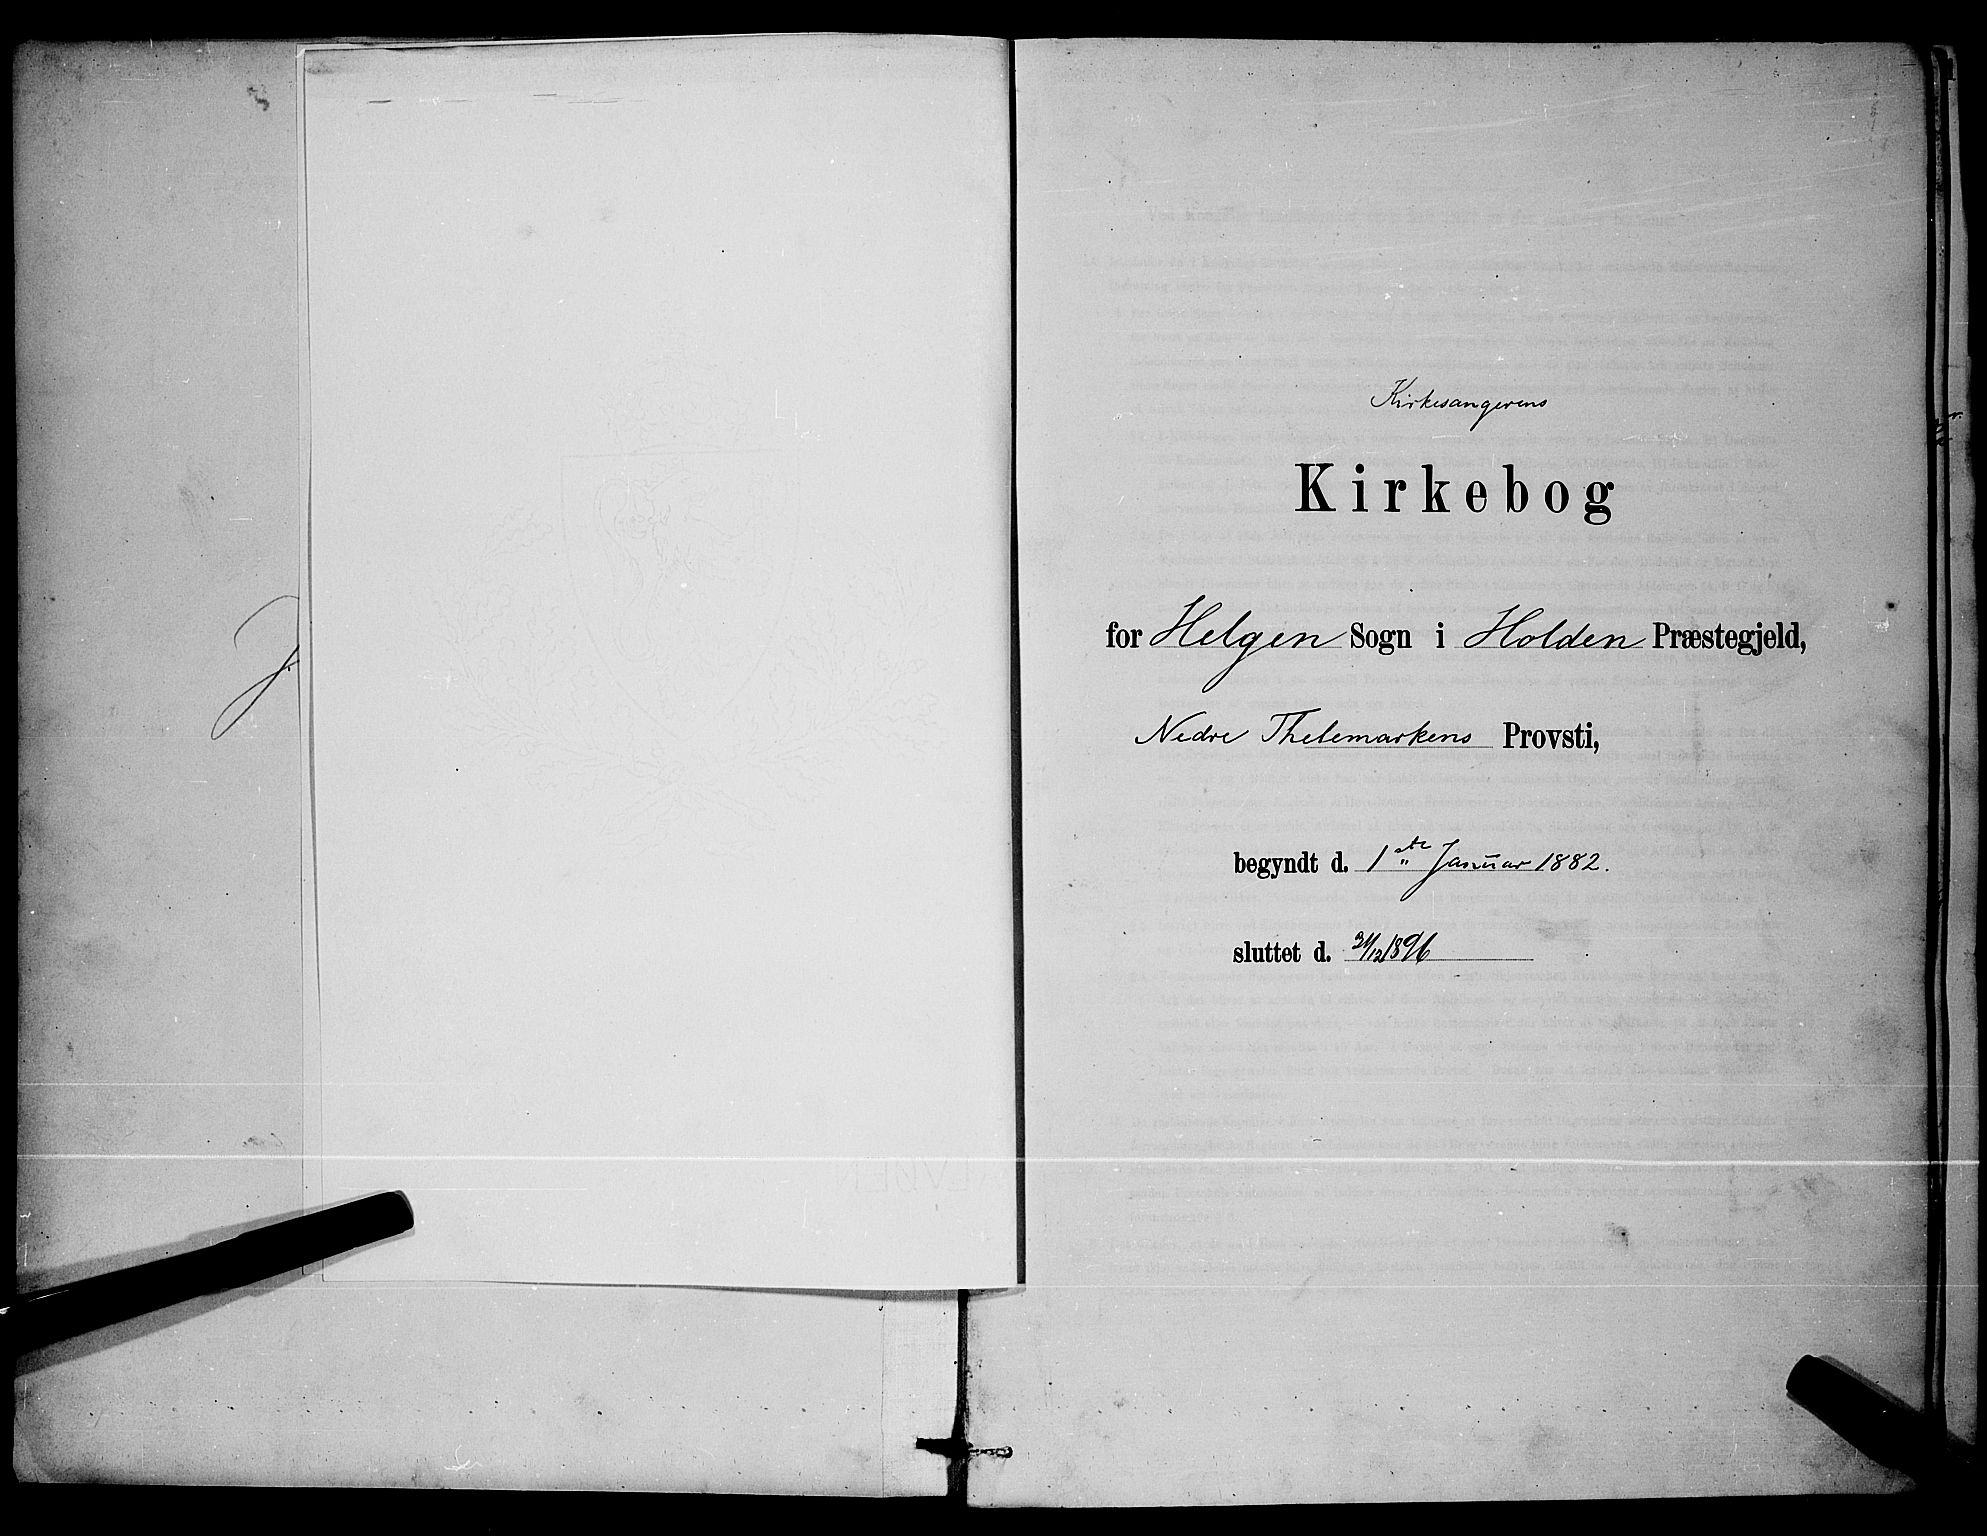 Kirkesangerens
Kirkebog
for Helgen Sogn i Holden Præstegjeld,
Nedre Thelemarkens Provsti,
begyndt d. 1ste Januar 1882.
sluttet d. 31/12 1896